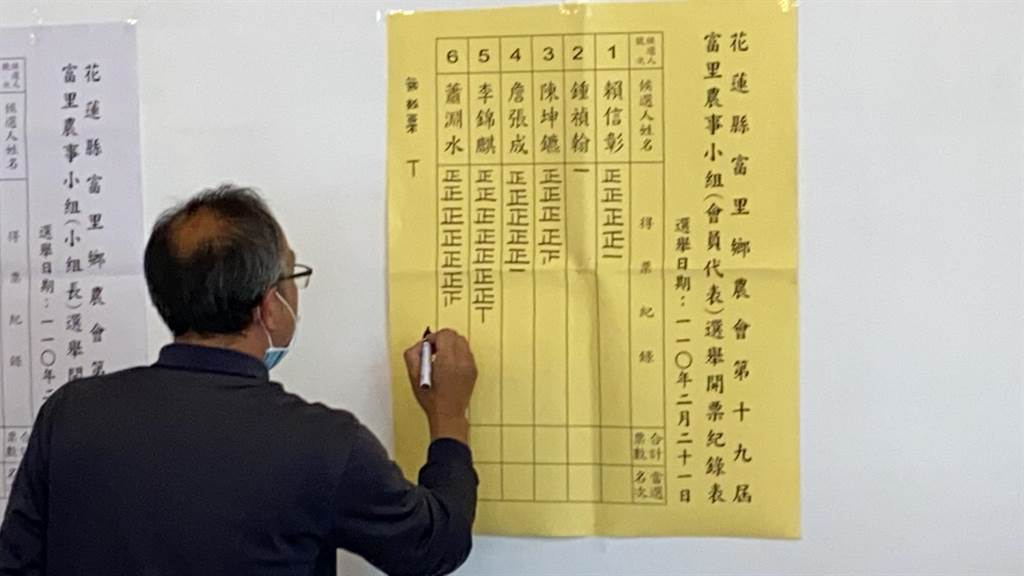 花蓮縣富里鄉農會第十九屆
富里農事小組(會員代表)選舉開票紀錄表
選舉日期:一一〇年二月二十一日
候選人號次 候選人姓名 得票紀錄 合計票數 當選名次
1 賴信彰 正正正正一
2 鍾禎翰 一
3 陳坤鑣 正正正正下
4 詹張成 正正正正正一
5 李錦麒 正正正正正正正丅
6 蕭淵水 正正正正正正下
無效票 丅
花蓮縣富里鄉農會第
富里農事小組(小組長)選舉開
選舉日期:一一〇年
候選人號次 候選人姓名 得票紀錄 合計票數